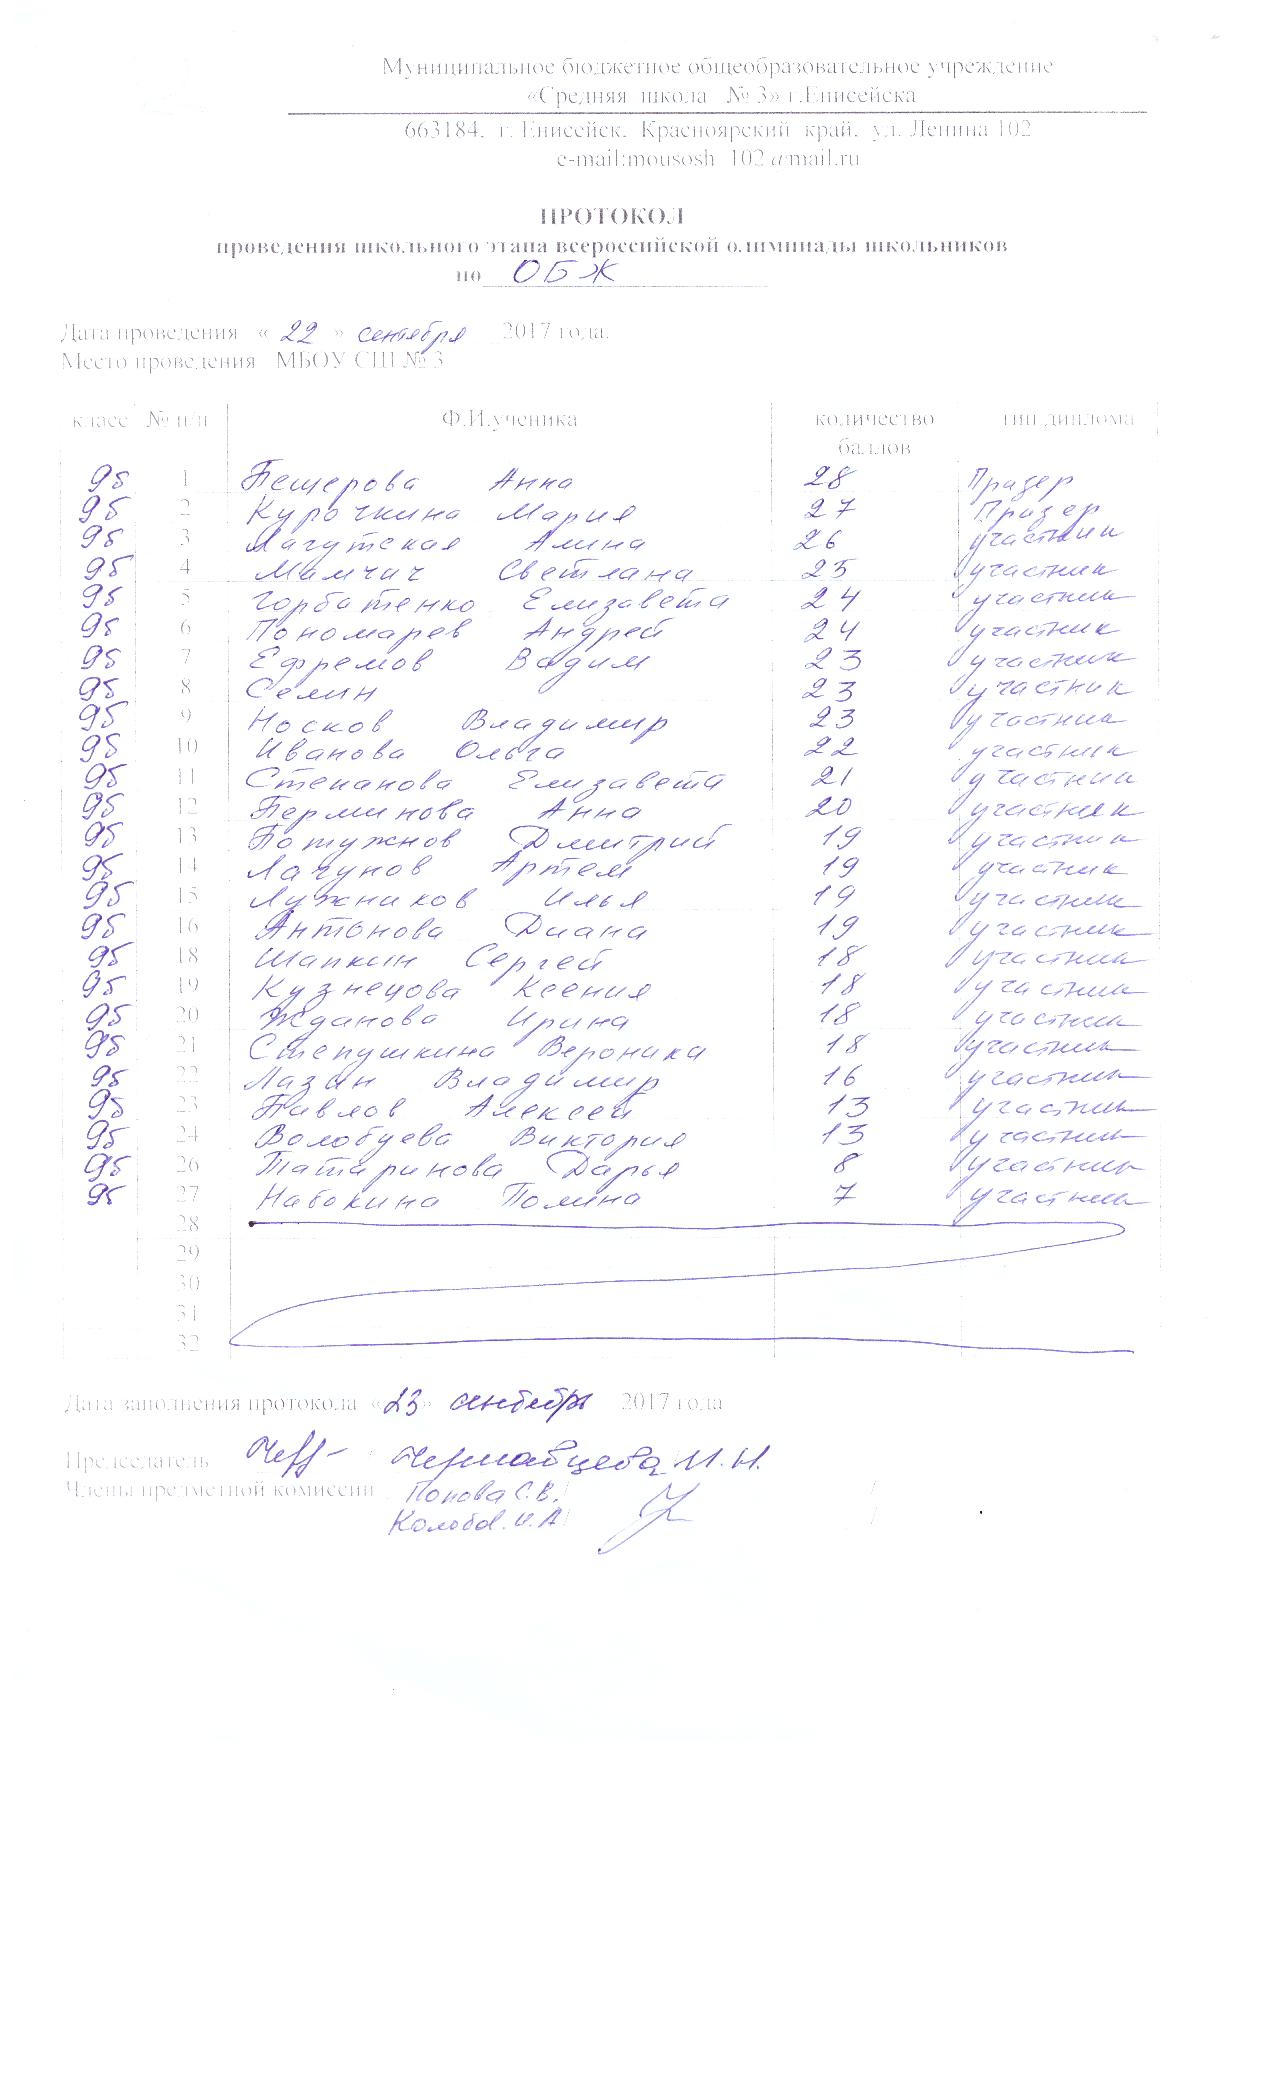 Муниципальное бюджетное общеобразовательное учреждение
«Средняя школа № 3» г.Енисейска
663184, г. Енисейск, Красноярский край, ул. Ленина 102
e-mail:mousosh_102@mail.ru
ПРОТОКОЛ
проведения школьного этапа всероссийской олимпиады школьников
по ОБЖ
Дата проведения « 22 » сентября 2017 года.
Место проведения МБОУ СШ № 3
класс № п/п Ф.И.ученика количество баллов тип диплома
9б 1 Пещерова Анна 28 Призер
9б 2 Курочкина Мария 27 Призер
9б 3 Лагутская Алина 26 участник
9б 4 Мамчич Светлана 25 участник
9б 5 Горбатенко Елизавета 24 участник
9б 6 Пономарев Андрей 24 участник
9б 7 Ефремов Вадим 23 участник
9б 8 Семин 23 участник
9б 9 Носков Владимир 23 участник
9б 10 Иванова Ольга 22 участник
9б 11 Степанова Елизавета 21 участник
9б 12 Перминова Анна 20 участник
9б 13 Потужнов Дмитрий 19 участник
9б 14 Лагунов Артем 19 участник
9б 15 Лужников Илья 19 участник
9б 16 Антонова Диана 19 участник
9б 18 Шапкин Сергей 18 участник
9б 19 Кузнецова Ксения 18 участник
9б 20 Жданова Ирина 18 участник
9б 21 Степушкина Вероника 18 участник
9б 22 Лазин Владимир 16 участник
9б 23 Павлов Алексей 13 участник
9б 24 Волобуева Виктория 13 участник
9б 26 Татаринова Дарья 8 участник
9б 27 Набокина Полина 7 участник
28
29
30
31
32
Дата заполнения протокола «23» сентября 2017 года
Председатель И.Н.
Члены предметной комиссии Попова С.В./ /
Колобов. И.А/ /